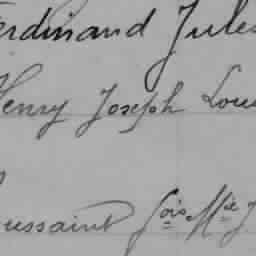 Ferdinand Jules
Henry Joseph Lou
oussaint fois Mie J